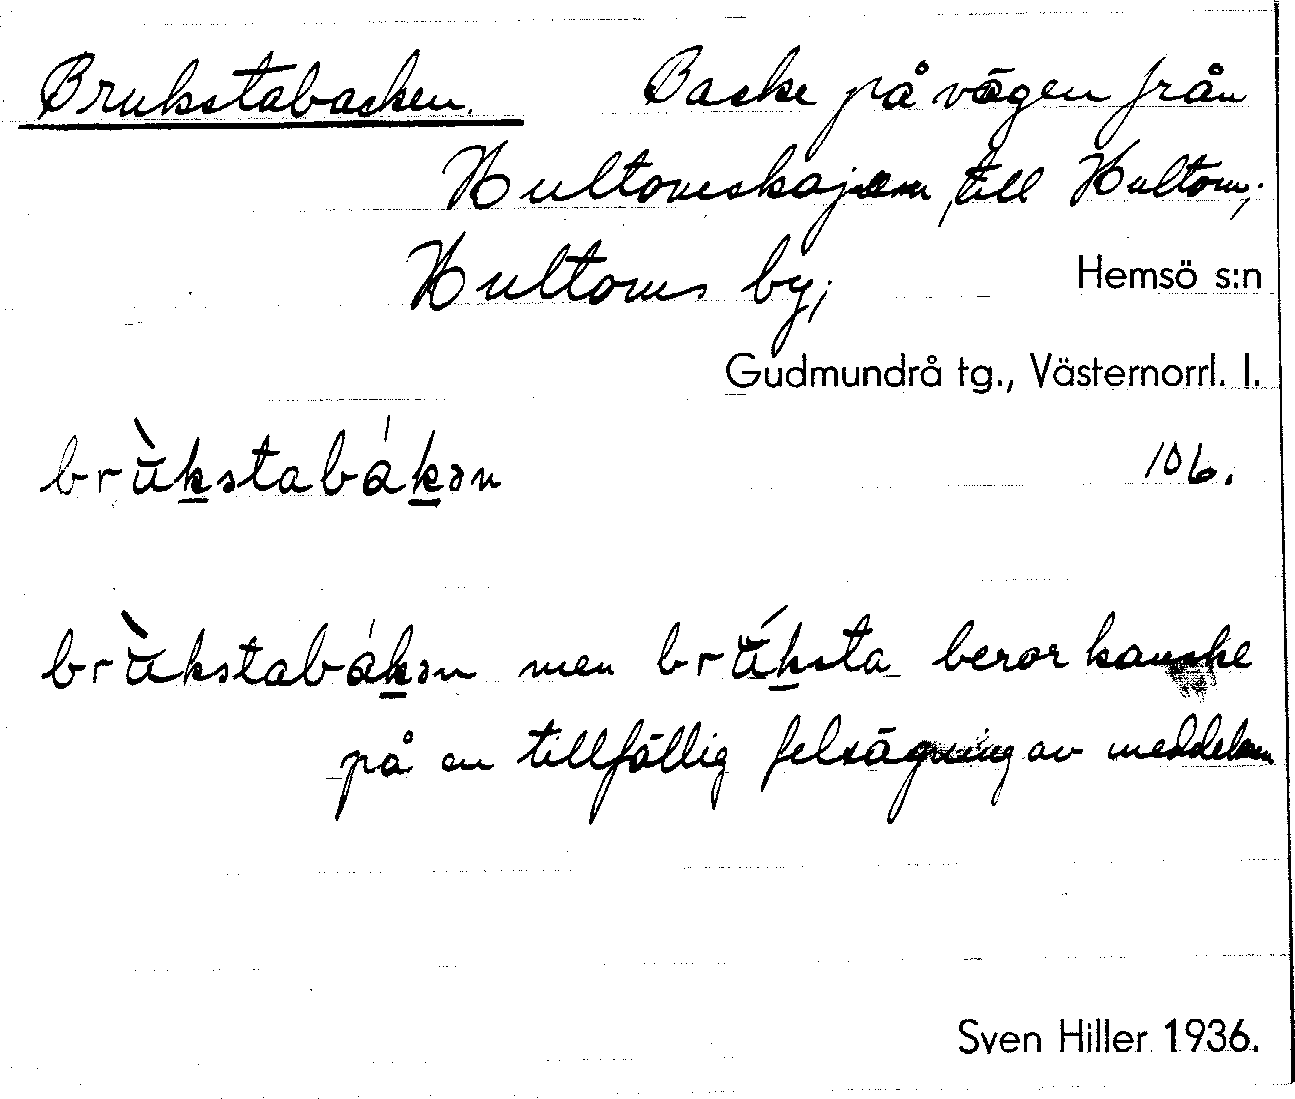 Brukstabacken. Backe på vägen från
Hultomskajen, till Hultom;
Hultoms by;
Hemsö s:n
Gudmundrå tg., Västernorrl. l.
brùkstabákən 106.
brùkstabákən men brúksta beror kanske
på en tillfällig felsägning av meddelaren
Sven Hiller 1936.